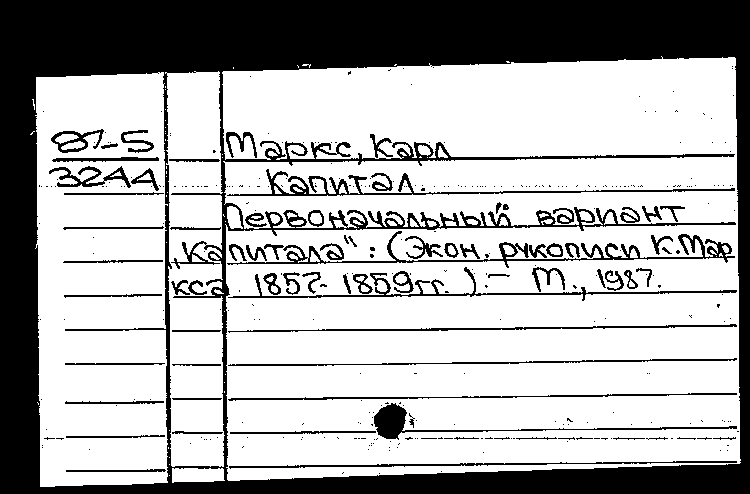 87-5 Маркс, Карл
3244 Капитал.
Первоначальный вариант
„Капитала“: (Экон. рукописи К.Мар
кса 1857-1859гг.).- М., 1987.